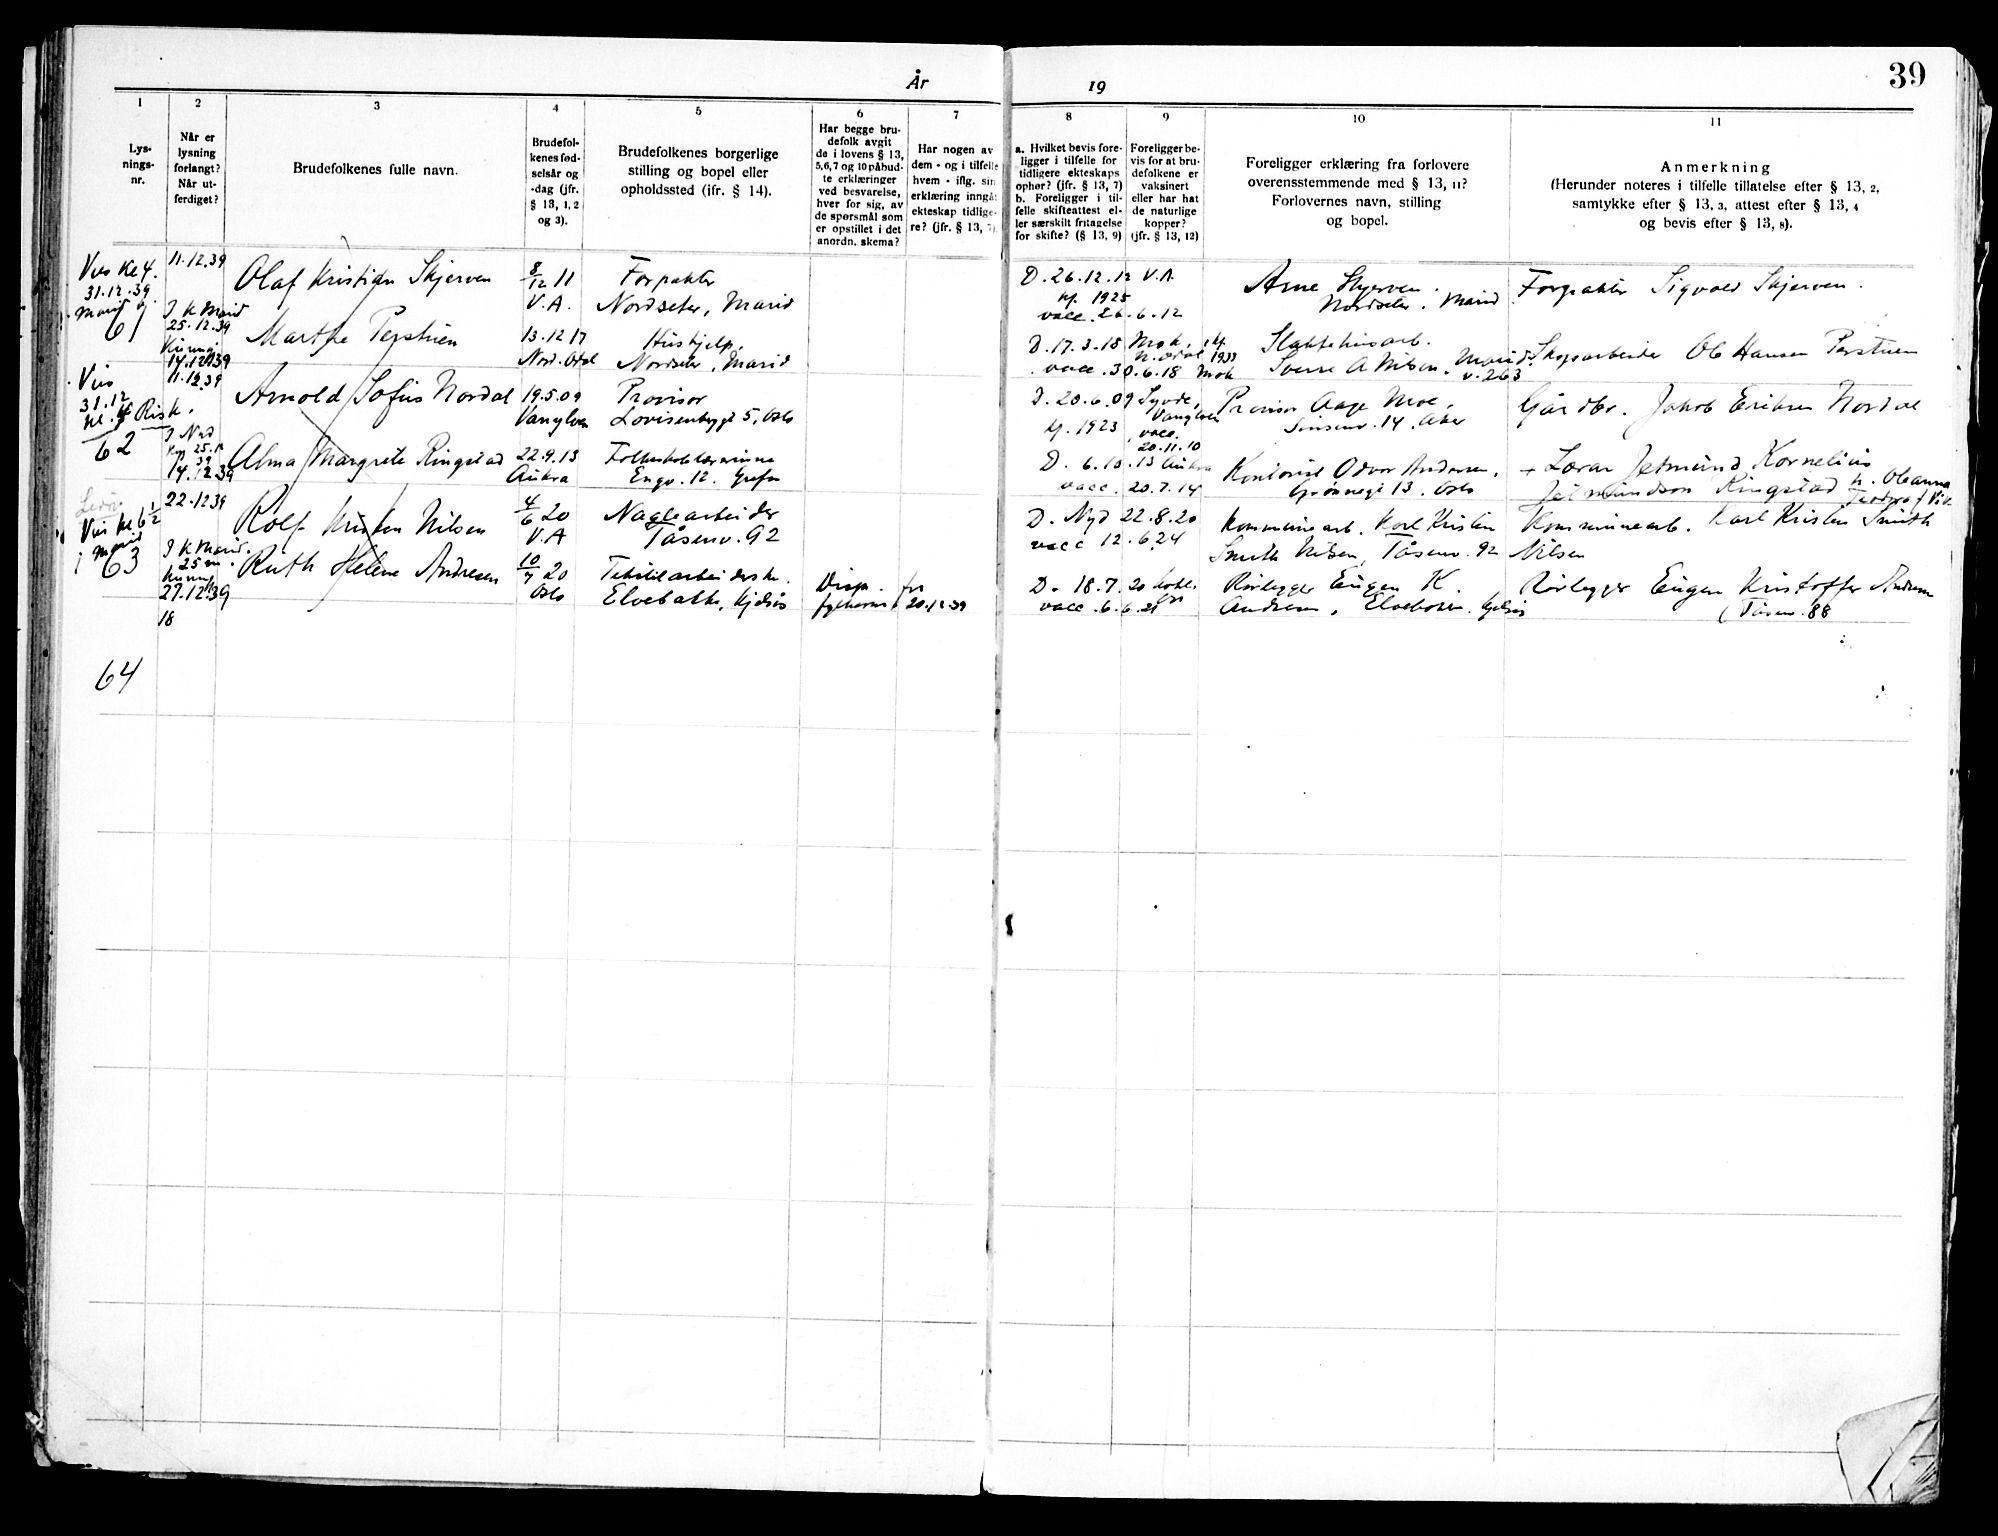 39
År 19
1
Lys-
nings-
nr.
2
Når er
lysning
forlangt?
Når ut-
ferdiget?
3
Brudefolkenes fulle navn.
4
Brudefol-
kenes fød-
selsår og
-dag (jfr.
§ 13, 1, 2
og 3).
5
Brudefolkenes borgerlige
stilling og bopel eller
opholdssted (ifr. § 14).
6
Har begge bru-
defolk avgit
de i lovens § 13,
5,6,7 og 10 påbud-
te erklæringer
ved besvarelse,
hver for sig, av
de spørsmål som
er opstillet i det
anordn. skema?
7
Har nogen av
dem - og i tilfelle
hvem - iflg. sin
erklæring inngåt
ekteskap tidlige-
re? (jfr. § 13, 7)
8
a. Hvilket bevis fore-
ligger i tilfelle for
tidligere ekteskaps
ophør? (jfr. § 13, 7)
b. Foreligger i til-
felle skifteattest el-
ler særskilt fritagelse
for skifte? (§ 13, 9)
9
Foreligger be-
vis for at bru-
defolkene er
vaksinert
eller har hat
de naturlige
kopper?
(jfr. § 13, 12)
10
Foreligger erklæring fra forlovere
overensstemmende med § 13, 11?
Forlovernes navn, stilling
og bopel.
11
Anmerkning
(Herunder noteres i tilfelle tillatelse efter § 13, 2,
samtykke efter § 13, 3, attest efter § 13, 4
og bevis efter § 13, 8).
Vies kl 4.
31.12.39
61
11.12.39
I K Marid
25.12.39
14.12.39
Olaf Kristian Skjerven
8/12 11
V.A.
Forpakter
Nordseter, Marid
D. 26.12.12 V.A.
kf. 1925
vacc. 26.6.12
Arne Skjerven.
Nordseter. Marid
Forpakter Sigvald Skjerven.
Marthe Perstuen
13.12 17
Nord. Odal
Hushjelp,
Nordseter, Marid
D. 17.3.18
vacc. 30.6.18
Slaktehusarb.
Sverre A Nilsen. Marid
v. 263
Skogsarbeider Ole Hansen Perstuen
Vies
31.12
kl. 4 Risk.
62
11.12.39
14.12.39
Arnold Sofus Nordal
19.5.09
Vanylven
Provisor
Lovisenberggt 5, Oslo
D. 20.6.09 Syvde,
Vanylven
kf. 1923
vacc.
20.11.10
Provisor Aage Moe,
Sinsenv. 14. Aker
Gårdbr. Jakob Eriksen Nordal
Alma Margrete Ringstad
22.9.13
Aukra
Folkeskolelærerinne
Engv. 12. Grefsen
D. 6.10.13 Aukra
vacc. 20.7.14
Kontorist Odvar Andersen,
Grønnegt 13. Oslo
+ Lærer Jetmund Kornelius
Jetmundson Ringstad h. Oleanna
Vies kl 6 1/2
i Marid
63
22.12 39
I K Marid.
27.12 39
18
Rolf Kristen Nilsen
4/6 20
V.A
Naglearbeider
Tåsenv. 92
D. Nyd 22.8.20
vacc 12.6.24
Kommunearb. Karl Kristen
Smith Nilsen, Tåsenv. 92
Kommunearb. Karl Kristen Smith
Nilsen
Ruth Helene Andresen
10/7 20
Oslo
Tekstilarbeiderske.
Elvebakke, Kjelsås
Disp. fra
20.12.39
D. 18.7.20
vacc. 6.6.21
Rørlegger Eugen K.
Andresen, Kjelsås
Rørlegger Eugen Kristoffer Andresen
(Tåsenv. 88
64